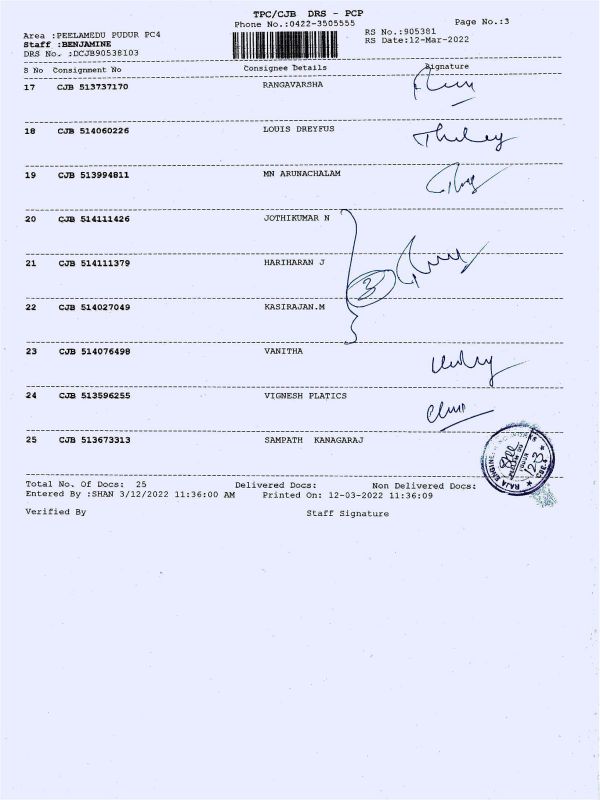 TPC/CJB DRS - PCP
Phone No.:0422-3505555
Page No.:3
Area :PEELAMEDU PUDUR PC4
RS No.:905381
Staff :BENJAMINE
RS Date:12-Mar-2022
DRS No. :DCJB90538103
S No Consignment No Consignee Details Signature
17 CJB 513737170 RANGAVARSHA
18 CJB 514060226 LOUIS DREYFUS
19 CJB 513994811 MN ARUNACHALAM
20 CJB 514111426 JOTHIKUMAR N
21 CJB 514111379 HARIHARAN J
3
22 CJB 514027049 KASIRAJAN.M
23 CJB 514076498 VANITHA
24 CJB 513596255 VIGNESH PLATICS
25 CJB 513673313 SAMPATH KANAGARAJ
RAJA ENGINE
12-3
Total No. Of Docs: 25 Delivered Docs: Non Delivered Docs:
Entered By :SHAN 3/12/2022 11:36:00 AM Printed On: 12-03-2022 11:36:09
Verified By Staff Signature